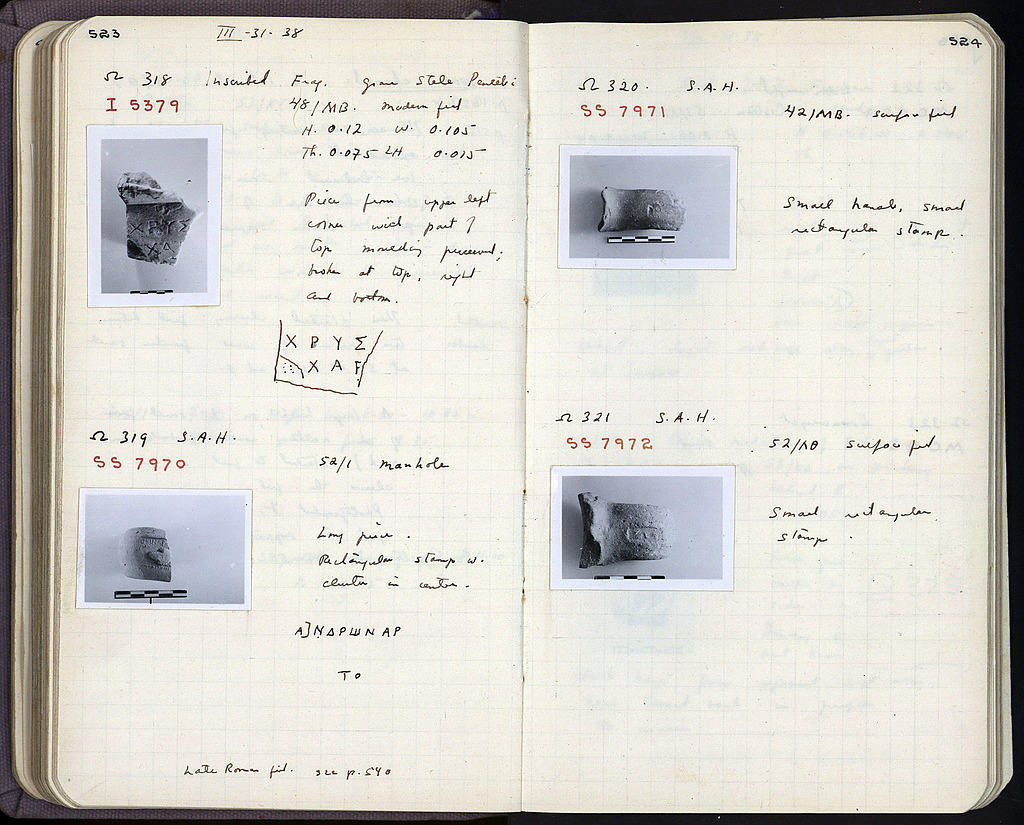 523
III -31- 38
Ω 318 Inscribed Frag. grave Stele Pentelic
I 5379
48/MB. modern fill
H. 0.12 W. 0.105
Th. 0.075 LH 0.015
Piece from upper left
corner with part of
top moulding preserved;
broken at top, right
and bottom.
Χ Ρ Υ Σ
Χ Α
Ω 319 S.A.H.
SS 7970
52/1 manhole
Long piece.
Rectangular stamp w.
cluster in center.
Α]ΝΔΡωΝ ΑΡ
ΤΟ
Late Roman fill. see p. 540
524
Ω 320. S.A.H.
SS 7971
42/MB. surface fill
Small handle, small
rectangular stamp.
Ω 321 S.A.H.
SS 7972
surface fill
Small rectangular
stamp.